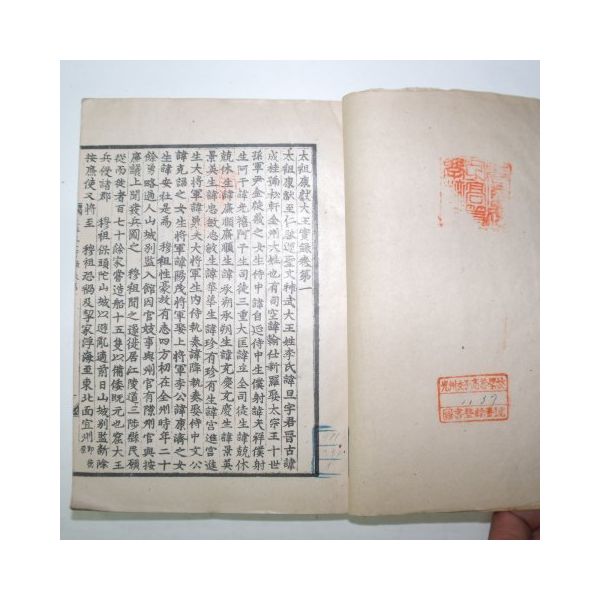 太祖康獻大王實錄卷第一
太祖康獻至仁啓運聖文神武大王姓李氏諱旦字君晉古諱
成桂號松軒全州大姓也有司空諱翰仕新羅娶太宗王十世
孫軍尹金殷義之女生侍中諱自延侍中生僕射諱天祥僕射
生阿干諱光禧阿干生司徒三重大匡諱立全司徒生諱兢休
兢休生諱廉順廉順生諱承朔承朔生諱充慶充慶生諱景英
景英生諱忠敏忠敏生諱華華生諱珍有珍有生諱宮進宮進
生大將軍諱勇夫大將軍生內侍執奏諱隣執奏娶侍中文公
諱克謙之女生將軍諱陽茂將軍娶上將軍李公諱康濟之女
生諱安社是爲 穆祖性豪放有志四方初在全州時年二十
餘勇略過人山城別監入館因官妓事與州官有隙州官與按
廉議上聞發兵圖之 穆祖聞之遂徙居江陵道三陟縣民願
從而徙者百七十餘家嘗造船十五隻以備倭旣元也窟大王
兵侵諸郡 穆祖保頭陀山城以避亂適前日山城別監新除
按廉使又將至 穆祖恐禍及挈家浮海至東北面宜州
11.37